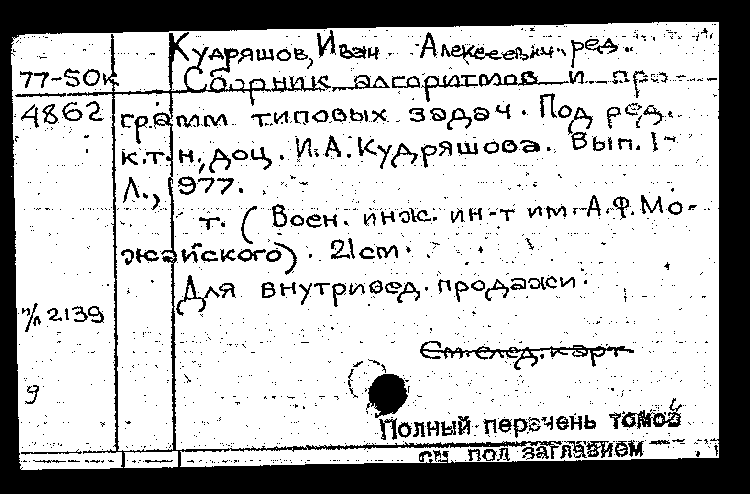 Кудряшов, Иван Алексеевич. ред.
77-50к Сборник алгоритмов и про-
4862 грамм типовых задач. Под ред.
к.т.н., доц. И.А.Кудряшова. Вып. 1-
Л., 1977.
т. (Воен. инж. ин-т им. А.Ф.Мо-
жайского). 21см.
Для внутривед. продажи.
п/п 2139
См. след. карт
9
Полный перечень томов
см. под заглавием